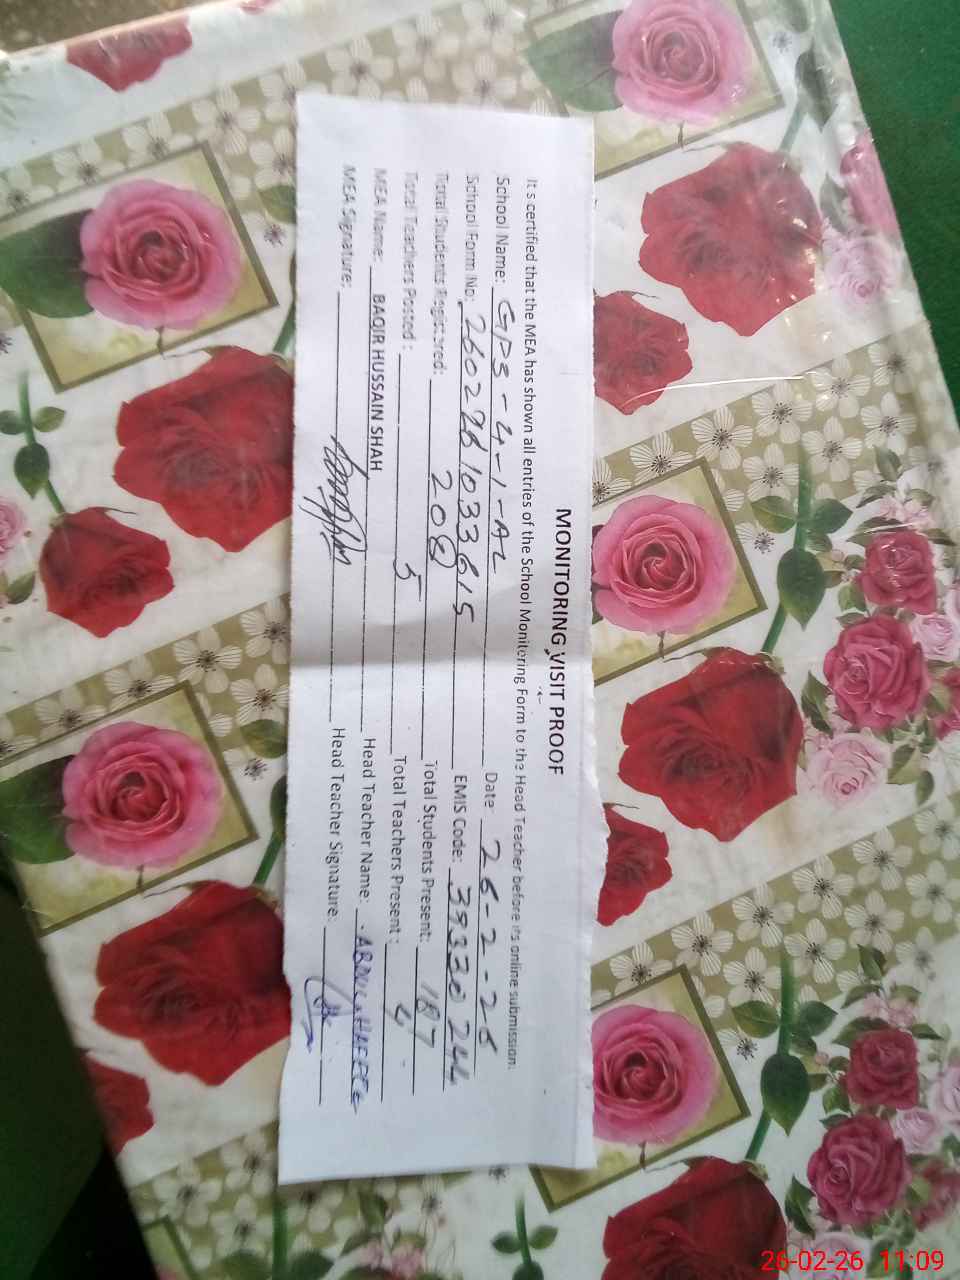 MONITORING VISIT PROOF
It s certified that the MEA has shown all entries of the School Monitering Form to the Head Teacher before it's online submission.
School Name: GPS - 4-1-AL Date: 26-2-26
School Form No: 2602261033615 EMIS Code: 39330244
Total Students Registered: 208 Total Students Present: 187
Total Teachers Posted : 5 Total Teachers Present : 4
MEA Name: BAQIR HUSSAIN SHAH Head Teacher Name: ABDUL HAFEEZ
MEA Signature: Head Teacher Signature:
26-02-26 11:09